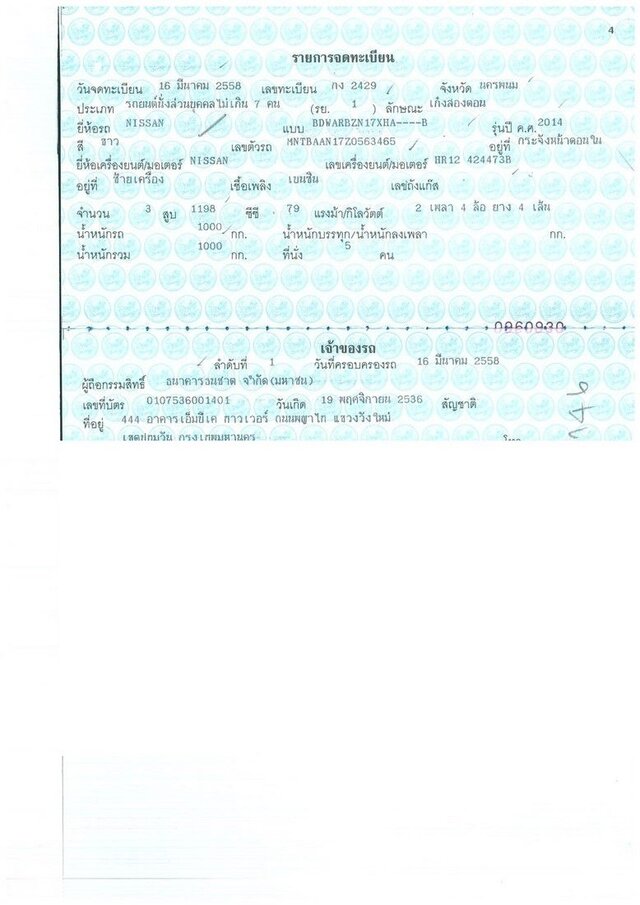 4
รายการจดทะเบียน
วันจดทะเบียน 16 มีนาคม 2558 เลขทะเบียน กง 2429 จังหวัด นครพนม
ประเภท รถยนต์นั่งส่วนบุคคลไม่เกิน 7 คน (รย. 1 ) ลักษณะ เก๋งสองตอน
ยี่ห้อรถ NISSAN แบบ BDWARBZN17XHA----B รุ่นปี ค.ศ. 2014
สี ขาว เลขตัวรถ MNTBAAN17Z0563465 อยู่ที่ กระจังหน้าตอนใน
ยี่ห้อเครื่องยนต์/มอเตอร์ NISSAN เลขเครื่องยนต์/มอเตอร์ HR12 424473B
อยู่ที่ ซ้ายเครื่อง เชื้อเพลิง เบนซิน เลขถังแก๊ส
จำนวน 3 สูบ 1198 ซีซี 79 แรงม้า/กิโลวัตต์ 2 เพลา 4 ล้อ ยาง 4 เส้น
น้ำหนักรถ 1000 กก. น้ำหนักบรรทุก/น้ำหนักลงเพลา กก.
น้ำหนักรวม 1000 กก. ที่นั่ง 5 คน
0860930
เจ้าของรถ
ลำดับที่ 1 วันที่ครอบครองรถ 16 มีนาคม 2558
ผู้ถือกรรมสิทธิ์ ธนาคารธนชาต จำกัด(มหาชน)
เลขที่บัตร 0107536001401 วันเกิด 19 พฤศจิกายน 2536 สัญชาติ
ที่อยู่ 444 อาคารเอ็มบีเค ทาวเวอร์ ถนนพญาไท แขวงวังใหม่
เขตปทุมวัน กรุงเทพมหานคร โทร.